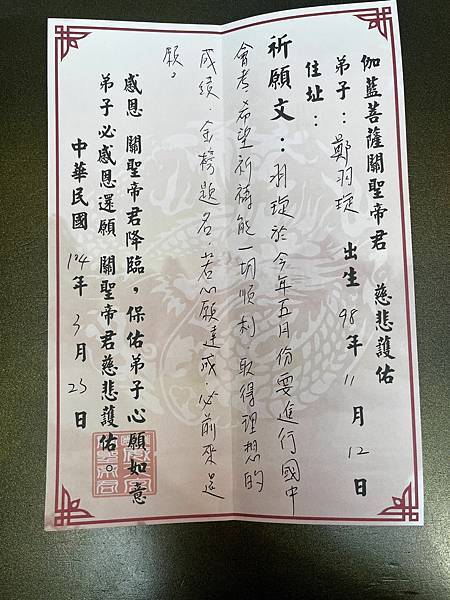 伽藍菩薩關聖帝君 慈悲護佑
弟子：鄭羽琁 出生 98 年 11 月 12 日
住址：
祈願文：羽琁於今年五月份要進行國中
會考，希望祈禱能一切順利，取得理想的
成績，金榜題名，若心願達成，必前來還
願。
感恩 關聖帝君降臨，保佑弟子心願如意
弟子必感恩還願 關聖帝君慈悲護佑。
中華民國 114 年 3 月 23 日